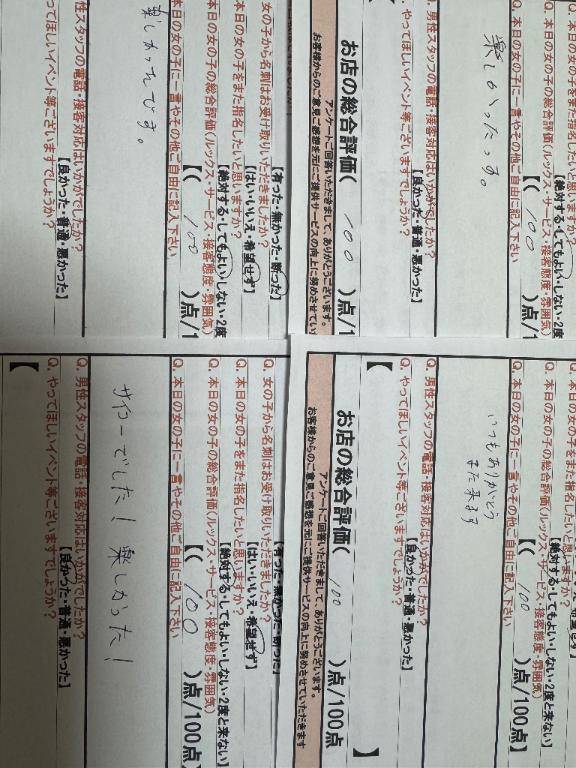 Q. 本日の女の子をまた指名したいと思いますか?
【絶対する・してもよい・しない・2度
Q. 本日の女の子の総合評価(ルックス・サービス・接客態度・雰囲気)
【( 100 )点/1
Q. 本日の女の子に一言やその他ご自由に記入下さい
楽しかったっす。
Q. 男性スタッフの電話・接客対応はいかがでしたか?
【良かった・普通・悪かった】
Q. やってほしいイベント等ございますでしょうか?
お店の総合評価( 100 )点/1
アンケートご回答いただきまして、ありがとうございます。
お客様からのご意見ご感想を元にご提供サービスの向上に努めさせてい
Q. 本日の女の子をまた指名したいと思いますか?
【絶対する・してもよい・しない・2度と来ない】
Q. 本日の女の子の総合評価(ルックス・サービス・接客態度・雰囲気)
【( 100 )点/100点】
Q. 本日の女の子に一言やその他ご自由に記入下さい
いつもありがとう
また来ます
Q. 男性スタッフの電話・接客対応はいかがでしたか?
【良かった・普通・悪かった】
Q. やってほしいイベント等ございますでしょうか?
【 】
お店の総合評価( 100 )点/100点
アンケートご回答いただきまして、ありがとうございます。
お客様からのご意見ご感想を元にご提供サービスの向上に努めさせていただきます
【有った・無かった・断った】
女の子から名刺はお受け取りいただきましたか?
【はい・いいえ・希望せず】
本日の女の子をまた指名したいと思いますか?
【絶対する・してもよい・しない・2度
本日の女の子の総合評価(ルックス・サービス・接客態度・雰囲気)
【( 100 )点/1
本日の女の子に一言やその他ご自由に記入下さい
楽しかったです。
性スタッフの電話・接客対応はいかがでしたか?
【良かった・普通・悪かった】
ってほしいイベント等ございますでしょうか?
【有った・無かった・断った】
Q. 女の子から名刺はお受け取りいただきましたか?
【はい・いいえ・希望せず】
Q. 本日の女の子をまた指名したいと思いますか?
【絶対する・してもよい・しない・2度と来ない】
Q. 本日の女の子の総合評価(ルックス・サービス・接客態度・雰囲気)
【( 100 )点/100点】
Q. 本日の女の子に一言やその他ご自由に記入下さい
サイコーでした! 楽しかった!
Q. 男性スタッフの電話・接客対応はいかがでしたか?
【良かった・普通・悪かった】
Q. やってほしいイベント等ございますでしょうか?
【